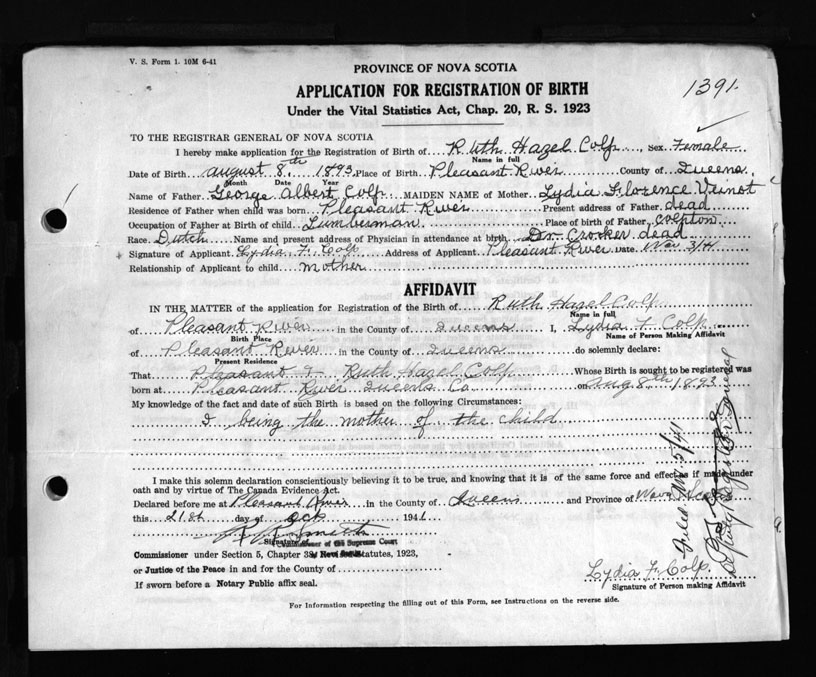 V. S. Form 1. 10M 6-41
PROVINCE OF NOVA SCOTIA
APPLICATION FOR REGISTRATION OF BIRTH
1391.
Under the Vital Statistics Act, Chap. 20, R. S. 1923
TO THE REGISTRAR GENERAL OF NOVA SCOTIA
I hereby make application for the Registration of Birth of Ruth Hazel Colp, Sex Female
Name in full
Date of Birth August 8th 1893, Place of Birth Pleasant River County of Queens
Month Date Year
Name of Father George Albert Colp MAIDEN NAME of Mother Lydia Florence Veinot
Residence of Father when child was born Pleasant River Present address of Father dead
Occupation of Father at Birth of child Lumberman Place of birth of Father, Colpton
Race Dutch Name and present address of Physician in attendance at birth Dr Crocker dead
Signature of Applicant Lydia F. Colp Address of Applicant Pleasant River Date Nov 3/41
Relationship of Applicant to child mother
AFFIDAVIT
IN THE MATTER of the application for Registration of the Birth of Ruth Hazel Colp
Name in full
of Pleasant River in the County of Queens I, Lydia F Colp
Birth Place Name of Person Making Affidavit
of Pleasant River in the County of Queens do solemnly declare:
Present Residence
That Ruth Hazel Colp Whose Birth is sought to be registered was
born at Pleasant River Queens Co on Aug 8th 1893
My knowledge of the fact and date of such Birth is based on the following Circumstances:
I being the mother of the child
I make this solemn declaration conscientiously believing it to be true, and knowing that it is of the same force and effect as if made under
oath and by virtue of The Canada Evidence Act.
Declared before me at Pleasant River in the County of Queens and Province of Nova Scotia
this 21st day of Oct 1941
Smith
Signature of
Commissioner of the Supreme Court
Commissioner under Section 5, Chapter 38, Statutes, 1923,
or Justice of the Peace in and for the County of
If sworn before a Notary Public affix seal.
Lydia F. Colp.
Signature of Person making Affidavit
For Information respecting the filling out of this Form, see Instructions on the reverse side.
Filed Nov 5/41
Deputy Registrar General